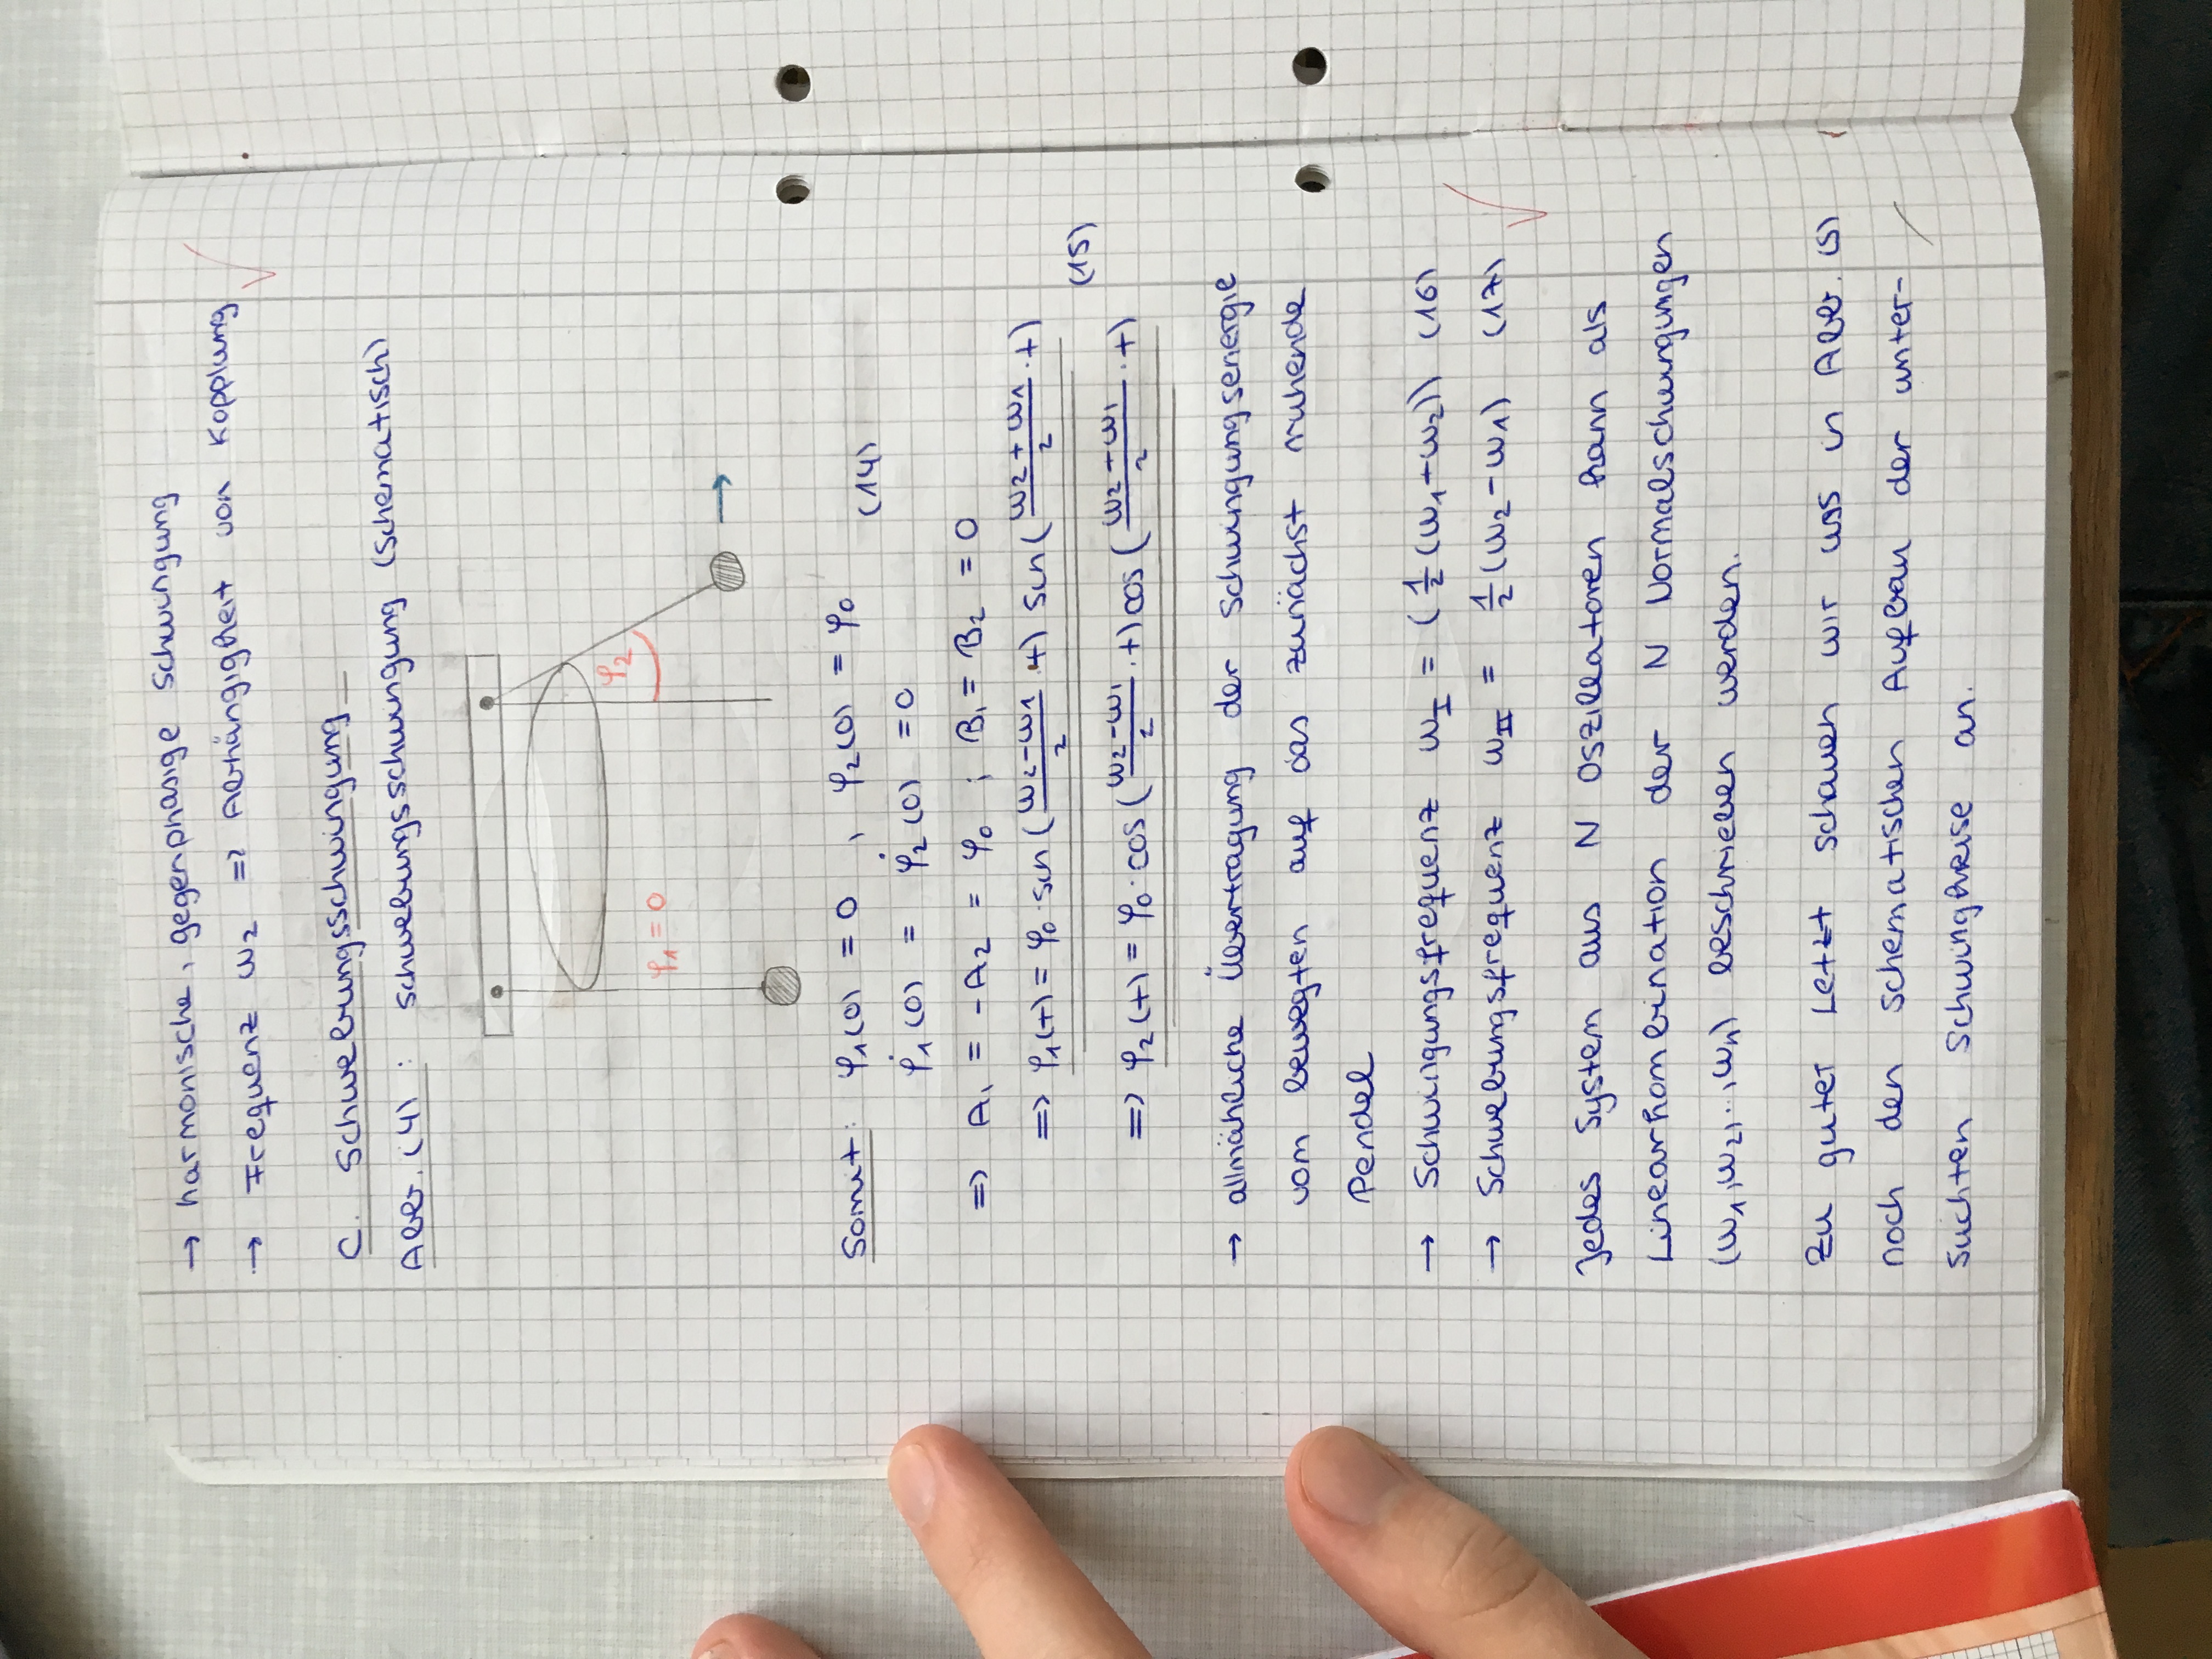 → harmonische, gegenphasige Schwingung
→ Frequenz ω₂ => Abhängigkeit von Kopplung
C. Schwebungsschwingung
Abb. (4): Schwebungsschwingung (schematisch)
φ₂
φ₁ = 0
Somit: φ₁(0) = 0 , φ₂(0) = φ₀
(14)
φ̇₁(0) = φ̇₂(0) = 0
=> A₁ = -A₂ = φ₀ ; B₁ = B₂ = 0
=> φ₁(t) = φ₀ · sin((ω₂-ω₁)/2 · t) sin((ω₂+ω₁)/2 · t)
(15)
=> φ₂(t) = φ₀ · cos((ω₂-ω₁)/2 · t) cos((ω₂+ω₁)/2 · t)
→ allmähliche Übertragung der Schwingungsenergie
vom bewegten auf das zunächst ruhende
Pendel
→ Schwingungsfrequenz ω_I = (1/2 (ω₁+ω₂)) (16)
→ Schwebungsfrequenz ω_II = 1/2 (ω₂-ω₁) (17)
Jedes System aus N Oszillatoren kann als
Linearkombination der N Normalschwingungen
(ω₁,ω₂,..,ωₙ) beschrieben werden.
Zu guter Letzt schauen wir uns in Abb. (5)
noch den schematischen Aufbau der unter-
suchten Schwingkreise an.